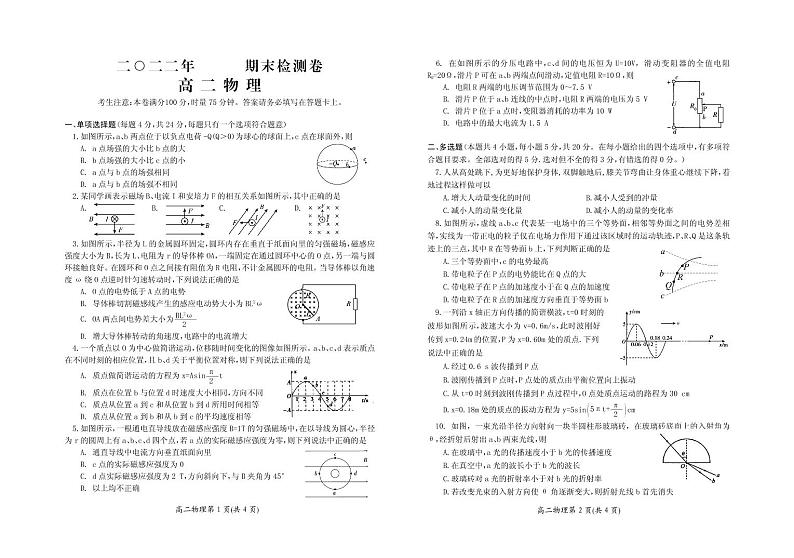 二〇二二年 期末检测卷
高 二 物 理
考生注意:本卷满分100分,时量75分钟。答案请务必填写在答题卡上。
一、单项选择题(每题4分,共24分,每题只有一个选项符合题意)
1.如图所示,a、b两点位于以负点电荷-Q(Q>0)为球心的球面上,c点在球面外,则
A. a点场强的大小比b点的大
B. b点场强的大小比c点的小
C. a点与b点的场强相同
D. a点与b点的场强不相同
2.某同学画表示磁场B、电流I和安培力F的相互关系如图所示,其中正确的是
A. B. C. D.
3.如图所示,半径为L的金属圆环固定,圆环内存在垂直于纸面向里的匀强磁场,磁感应
强度大小为B,长为L、电阻为r的导体棒OA,一端固定在通过圆环中心的O点,另一端与圆
环接触良好。在圆环和O点之间接有阻值为R电阻,不计金属圆环的电阻。当导体棒以角速
度ω绕O点逆时针匀速转动时,下列说法正确的是
A. O点的电势低于A点的电势
B. 导体棒切割磁感线产生的感应电动势大小为BL²ω
C. OA两点间电势差大小为BL²ω/2
D. 增大导体棒转动的角速度,电路中的电流增大
4.一个质点以O为中心做简谐运动,位移随时间变化的图像如图所示。a、b、c、d表示质点
在不同时刻的相应位置,且b、d关于平衡位置对称,则下列说法正确的是
A. 质点做简谐运动的方程为x=Asinπ/2t
B. 质点在位置b与位置d时速度大小相同,方向不同
C. 质点从位置a到c和从位置b到d所用时间相等
D. 质点从位置a到b和从b到c的平均速度相等
5.如图所示,一根通电直导线放在磁感应强度B=1T的匀强磁场中,在以导线为圆心,半径
为r的圆周上有a、b、c、d四个点,若a点的实际磁感应强度为零,则下列说法中正确的是
A. 通直导线中电流方向垂直纸面向里
B. c点的实际磁感应强度为0
C. d点实际磁感应强度为2 T,方向斜向下,与B夹角为45°
D. 以上均不正确
高二物理第1页(共4页)
6. 在如图所示的分压电路中,c、d间的电压恒为U=10V,滑动变阻器的全值电阻
R₀=20Ω,滑片P可在a、b两端点间滑动,定值电阻R=10Ω,则
A. 电阻R两端的电压调节范围为0~7.5 V
B. 滑片P位于a、b连线的中点时,电阻R两端的电压为5 V
C. 滑片P位于a点时,变阻器消耗的功率为10 W
D. 电路中的最大电流为1.5 A
二、多选题(本题共4小题,每小题5分,共20分。在每小题给出的四个选项中,有多项符
合题目要求。全部选对的得5分,选对但不全的得3分,有错选的得0分。)
7.人从高处跳下,为更好地保护身体,双脚触地后,膝关节弯曲让身体重心继续下降,着
地过程这样做可以
A.增大人动量变化的时间 B.减小人受到的冲量
C.减小人的动量变化量 D.减小人的动量的变化率
8.如图所示,虚线a、b、c代表某一电场中的三个等势面,相邻等势面之间的电势差相
等,实线为一带正电的粒子仅在电场力作用下通过该区域时的运动轨迹,P、R、Q是这条轨
迹上的三点,其中R在等势面b上,下列判断正确的是
A.三个等势面中,c的电势最高
B.带电粒子在P点的电势能比在Q点的大
C.带电粒子在P点的加速度小于在Q点的加速度
D.带电粒子在R点的加速度方向垂直于等势面b
9.一列沿x轴正方向传播的简谐横波,t=0时刻的
波形如图所示,波速大小为v=0.6m/s,此时波刚好
传到x=0.24m的位置,P为x=0.60m处的质点.下列
说法中正确的是
A.经过0.6 s波传播到P点
B.波刚传播到P点时,P点处的质点由平衡位置向上振动
C.从t=0时刻到波刚传播到P点过程中,O点处质点运动的路程为30 cm
D.x=0.18m处的质点的振动方程为y=5sin(5πt+π/2)cm
10. 如图,一束光沿半径方向射向一块半圆柱形玻璃砖,在玻璃砖底面上的入射角为
θ,经折射后射出a、b两束光线,则
A.在玻璃中,a光的传播速度小于b光的传播速度
B.在真空中,a光的波长小于b光的波长
C.玻璃砖对a光的折射率小于对b光的折射率
D.若改变光束的入射方向使θ角逐渐变大,则折射光线b首先消失
高二物理第2页(共4页)